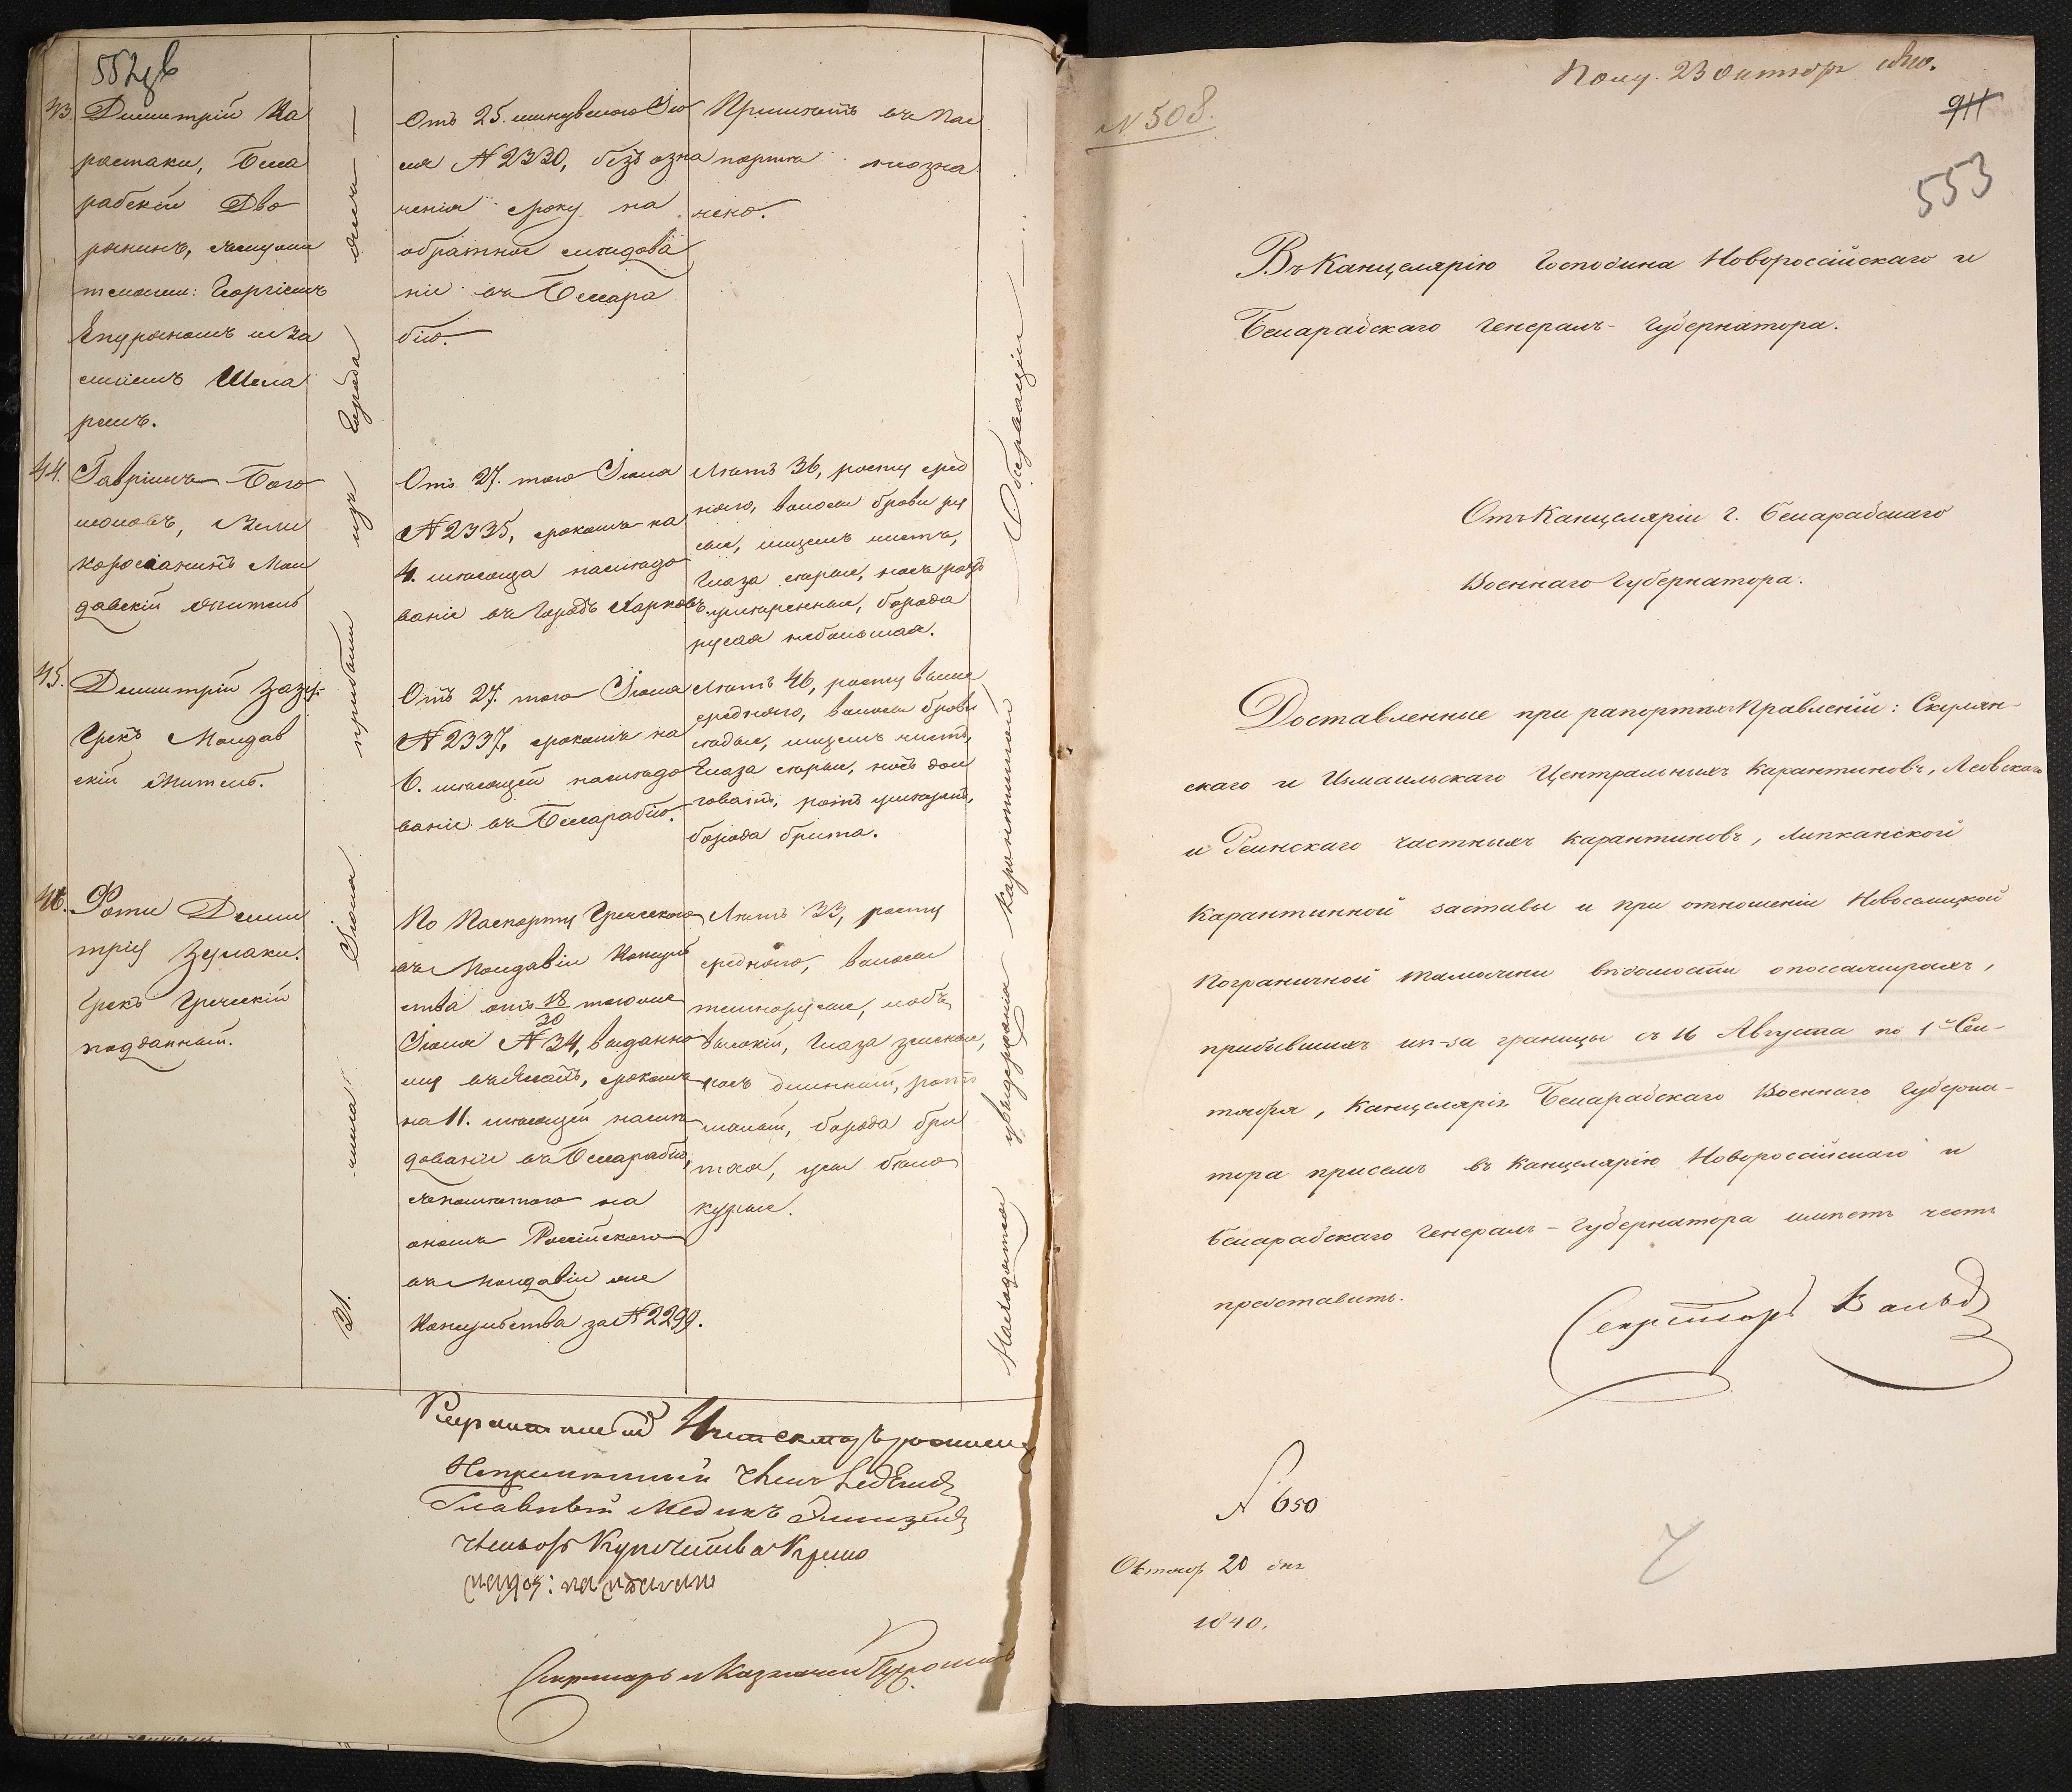 552 об
43.
Димитрій Ка
растаки, Беса
рабскій Дво
рянинъ, съслужи
телями: Георгіемъ
Епуряномъ и Ва
силіемъ Шела
ремъ.
Отъ 25. минувшаго Ію
ля № 2330, безъ озна
ченія сроку на
обратное слѣдова
ніе въ Бессара
бію.
Примѣтъ въ пас
портѣ неозна
чено.
44.
Гавріилъ Бого
моловъ, Вели
коросіанинъ Мол
давскій житель
Отъ 27. того Іюля
№ 2335, срокомъ на
4. мѣсяца наслѣдо
ваніе въ Городъ Харковъ
Лѣтъ 36, росту сред
няго, волосы брови ру
сые, лицемъ чистъ,
глаза серые, носъ ротъ
умѣренные, борода
русая небольшая.
45.
Димитрій
Грекъ Молдав
скій Житель.
Отъ 27. того Іюля
№ 2337, срокомъ на
6. мѣсяцей наслѣдо
ваніе въ Бессарабію.
Лѣтъ 46, росту выше
средняго, волосы брови
седые, лицемъ чистъ,
глаза серые, носъ дол
говатъ, ротъ умѣренъ,
борода брита.
46.
Фоти Дими
трiу Зумаки.
Грекъ Греческій
подданный.
По Паспорту Греческаго
въ Молдавіи Консуль
ства отъ 18/30 того же
Іюля № 34, выданно
му въ Яссахъ, срокомъ
на 11. мѣсяцей наслѣ
дованіе въ Бессарабію,
съпомѣтою на
ономъ Россійскаго
въ Молдавіи же
Консульства за № 2299.
Лѣтъ 33, росту
средняго, волосы
темнорусые, лобъ
высокій, глаза
носъ длинный, ротъ
малый, борода бри
тая, усы бѣло
курые.
31. числа Іюля прибыли изъ Города Яссъ
Находятся увыдержанія карантинной Обсерваціи
Непремѣнный Членъ
Главный Медикъ
Членъ отъ Купечества
Секретарь и Казначей
Полу. 23 Октября 1840.
№ 508.
911
553
Въ Канцелярію Господина Новоросійскаго и
Бесарабскаго Генералъ-Губернатора.
Отъ Канцеляріи г. Бесарабскаго
Военнаго Губернатора.
Доставленные при рапортѣхъ Правленій: Скулян-
скаго и Измаильскаго Центральныхъ Карантиновъ, Леовскаго
и Ренискаго частныхъ карантиновъ, Липканской
Карантинной заставы и при отношеніи Новоселицкой
Пограничной таможни вѣдомости опассажирахъ,
прибывшихъ из-за границы съ 16 Августа по 1е Сен-
тября, Канцелярія Бесарабскаго Военнаго Губерна-
тора присемъ въ Канцелярію Новоросійскаго и
Бесарабскаго Генералъ-Губернатора имѣетъ честь
представить.
Секретарь
№ 650
Октября 20 дня
1840.